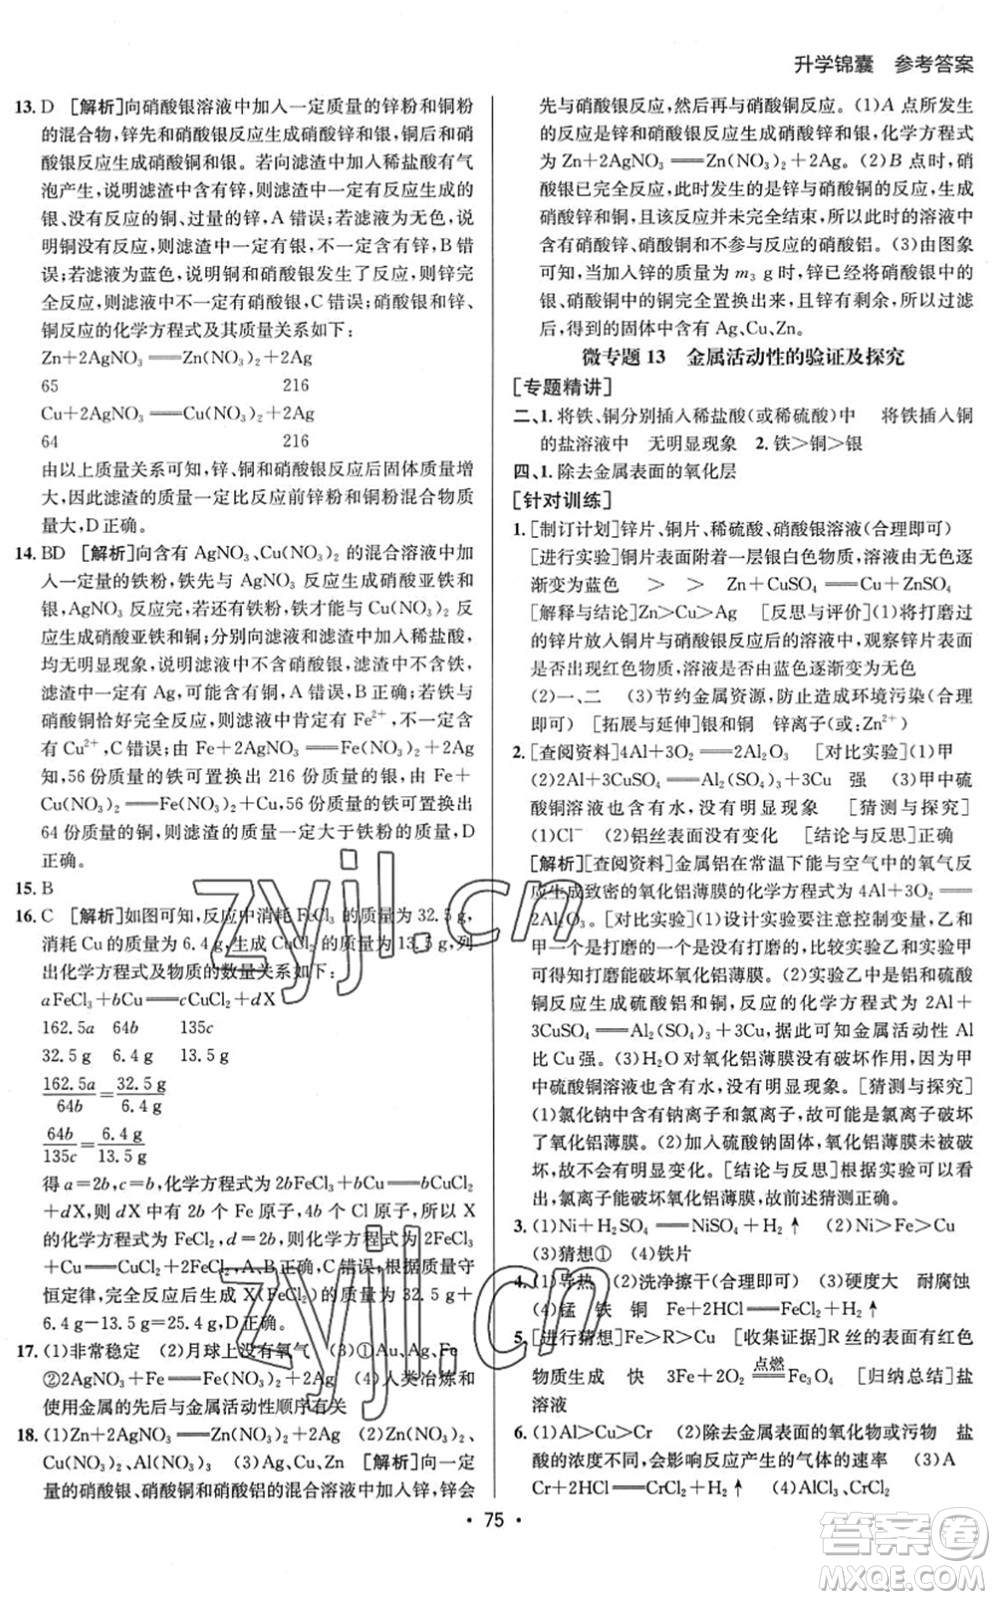 升学锦囊 参考答案
13. D [解析]向硝酸银溶液中加入一定质量的锌粉和铜粉
的混合物,锌先和硝酸银反应生成硝酸锌和银,铜后和硝
酸银反应生成硝酸铜和银。若向滤渣中加入稀盐酸有气
泡产生,说明滤渣中含有锌,则滤渣中含有反应生成的
银、没有反应的铜、过量的锌,A 错误;若滤液为无色,说
明铜没有反应,则滤渣中一定有银、铜,可能有锌,B 错
误;若滤液为蓝色,说明铜和硝酸银发生了反应,则锌已
完全反应,则滤液中可能有硝酸银,C 错误;硝酸银和锌、
铜反应的化学方程式及其质量关系如下:
Zn+2AgNO₃══Zn(NO₃)₂+2Ag
65 216
Cu+2AgNO₃══Cu(NO₃)₂+2Ag
64 216
由以上质量关系可知,锌、铜和硝酸银反应后固体质量增
大,因此滤渣的质量一定比反应前锌粉和铜粉混合物质
量大,D 正确。
14. BD [解析]向含有 AgNO₃、Cu(NO₃)₂ 的混合溶液中加
入一定量的铁粉,铁先与 AgNO₃ 反应生成硝酸亚铁和
银,AgNO₃ 反应完,若还有铁粉,铁才能与 Cu(NO₃)₂ 反
应生成硝酸亚铁和铜;分别向滤液和滤渣中滴加稀盐酸,
均无明显现象,说明滤液中不含硝酸银,滤渣中不含铁,
滤渣中一定有 Ag,可能含有铜,A 错误,B 正确;若铁与
硝酸铜恰好完全反应,则滤液中只含有 Fe²⁺,不一定含
有 Cu²⁺,C 错误;由 Fe+2AgNO₃══Fe(NO₃)₂+2Ag
可知,56 份质量的铁可置换出 216 份质量的银,由 Fe+
Cu(NO₃)₂══Fe(NO₃)₂+Cu,56 份质量的铁可置换出
64 份质量的铜,则滤渣的质量一定大于铁粉的质量,D
正确。
15. B
16. C [解析]如图可知,反应中消耗 FeCl₃ 的质量为 32.5 g,
消耗 Cu 的质量为 6.4 g,生成 CuCl₂ 的质量为 13.5 g,列
出化学方程式及物质的数量关系如下:
aFeCl₃+bCu══cCuCl₂+dX
162.5a 64b 135c
32.5 g 6.4 g 13.5 g
162.5a/64b=32.5 g/6.4 g
64b/135c=6.4 g/13.5 g
得 a=2b,c=b,化学方程式为 2bFeCl₃+bCu══bCuCl₂
+dX,则 dX 中有 2b 个 Fe 原子,4b 个 Cl 原子,所以 X
的化学式为 FeCl₂,d=2b,则化学方程式为 2FeCl₃+
Cu══CuCl₂+2FeCl₂,A、B 错误,C 正确;根据质量守
恒定律,完全反应后生成 X(FeCl₂)的质量=32.5 g+
6.4 g-13.5 g=25.4 g,D 错误。
17. (1)非常稳定 (2)月球上没有氧气 (3)①Au、Ag、Fe
②2AgNO₃+Fe══Fe(NO₃)₂+2Ag (4)人类冶炼和
使用金属的先后与金属活动性顺序有关
18. (1)Zn+2AgNO₃══Zn(NO₃)₂+2Ag (2)Zn(NO₃)₂、
Cu(NO₃)₂、Al(NO₃)₃ (3)Ag、Cu、Zn [解析]向一定
量的硝酸银、硝酸铜和硝酸铝的混合溶液中加入锌,锌会
先与硝酸银反应,然后再与硝酸铜反应。(1)A 点所发生
的反应是锌与硝酸银反应生成硝酸锌和银,化学方程式
为 Zn+2AgNO₃══Zn(NO₃)₂+2Ag。(2)B 点时,硝
酸银已完全反应,此时发生的是锌与硝酸铜的反应,生成
硝酸锌和铜,且该反应并未完全结束,所以此时的溶液中
含有硝酸锌、硝酸铜和不参与反应的硝酸铝。(3)由图象
可知,当加入锌的质量为 m₃ g 时,锌已将硝酸银中的银、
硝酸铜中的铜完全置换出来,且锌有剩余,所以过滤
后,得到的固体中含有 Ag、Cu、Zn。
微专题 13 金属活动性的验证及探究
[专题精讲]
二、1. 将铁、铜分别插入稀盐酸(或稀硫酸)中 将铁插入铜
的盐溶液中 无明显现象 2. 铁>铜>银
四、1. 除去金属表面的氧化层
[针对训练]
1. [制订计划]锌片、铜片、稀硫酸、硝酸银溶液(合理即可)
[进行实验]铜片表面附着一层银白色物质,溶液由无色逐
渐变为蓝色 > > Zn+CuSO₄══Cu+ZnSO₄
[解释与结论]Zn>Cu>Ag [反思与评价](1)将打磨过
的锌片放入铜片与硝酸银反应后的溶液中,观察锌片表面
是否出现红色物质,溶液是否由蓝色逐渐变为无色
(2)一、二 (3)节约金属资源,防止造成环境污染(合理
即可) [拓展与延伸]银和铜 锌离子(或;Zn²⁺)
2. [查阅资料]4Al+3O₂══2Al₂O₃ [对比实验](1)甲
(2)2Al+3CuSO₄══Al₂(SO₄)₃+3Cu 强 (3)甲中硫
酸铜溶液中也含有水,没有明显现象 [猜测与探究]
(1)Cl⁻ (2)铝丝表面没有变化 [结论与反思]正确
[解析][查阅资料]金属铝在常温下能与空气中的氧气反
应生成致密的氧化铝薄膜的化学方程式为 4Al+3O₂══
2Al₂O₃。[对比实验](1)设计实验要注意控制变量,乙和
甲中一个是打磨的一个是没有打磨的,比较实验乙和实验甲
可得知打磨能破坏氧化铝薄膜。(2)实验乙中是铝和硫酸
铜反应生成硫酸铝和铜,反应的化学方程式为 2Al+
3CuSO₄══Al₂(SO₄)₃+3Cu,据此可知金属活动性 Al
比 Cu 强。(3)H₂O 对氧化铝薄膜没有破坏作用,因为甲
中硫酸铜溶液中也含有水,没有明显变化。[猜测与探究]
(1)氯化钠中含有钠离子和氯离子,故可能是氯离子破坏
了氧化铝薄膜。(2)加入硫酸钠固体,氧化铝薄膜未被破
坏,故没有明显变化。[结论与反思]根据实验可以看
出,氯离子能破坏氧化铝薄膜,故前述猜测正确。
3. (1)Ni+H₂SO₄══NiSO₄+H₂↑ (2)Ni>Fe>Cu
(3)猜想① (4)铁片
4. (1)导热 (2)洗净擦干(合理即可) (3)硬度大 耐腐蚀
(4)锰 铁 铜 Fe+2HCl══FeCl₂+H₂↑
5. [进行猜想]Fe>R>Cu [收集证据]R 丝的表面有红色
物质生成 快 3Fe+2O₂ 点燃══ Fe₃O₄ [归纳总结]盐
溶液
6. (1)Al>Cr>Cu (2)除去金属表面的氧化物或污物 盐
酸的浓度不同,会影响反应产生的气体的速率 (3)A
Cr+2HCl══CrCl₂+H₂↑ (4)Al+CrCl₃══AlCl₃+Cr
· 75 ·
zyjl.cn
zyjl.cn
答案圈
MXQE.COM